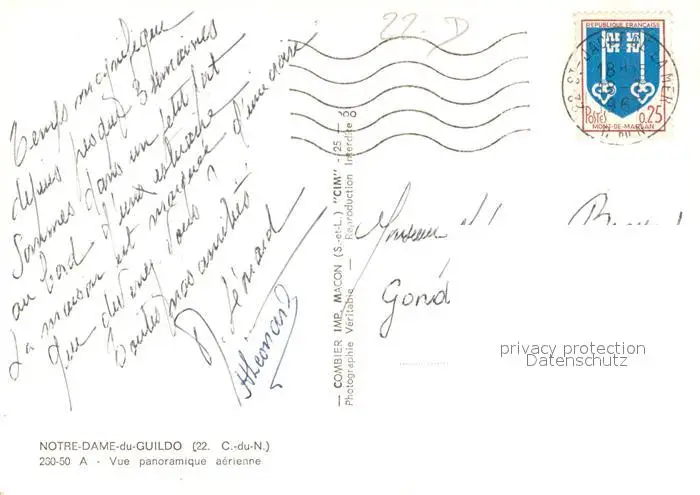 22-D
Temps magnifique
depuis presque 3 semaines
Sommes dans un petit port
au bord d'une estuaire
La maison est marquée d'une croix
que devenez vous ?
Toutes nos amitiés
Lénard
HLeonard
— COMBIER IMP. MACON (S.-et-L.) "CIM" — 25 —
Photographie Véritable - Reproduction Interdite
REPUBLIQUE FRANÇAISE
POSTES 0,25
MONT-DE-MARSAN
Monsieur
Gond
privacy protection
Datenschutz
NOTRE-DAME-du-GUILDO (22. C.-du-N.)
260-50 A - Vue panoramique aérienne